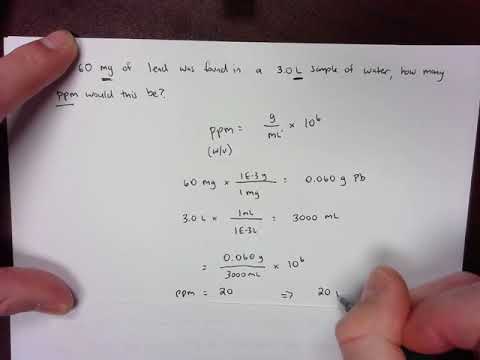 60 mg of lead was found in a 3.0 L sample of water, how many
ppm would this be?
ppm = g/mL × 10⁶
(w/v)
60 mg × 1E-3g/1 mg = 0.060 g Pb
3.0 L × 1mL/1E-3L = 3000 mL
= 0.060g/3000mL × 10⁶
ppm = 20 => 20